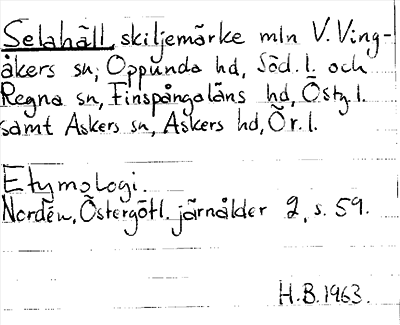 Selahäll, skiljemärke mln V. Ving-
åkers sn, Oppunda hd, Söd. l. och
Regna sn, Finspångaläns hd, Östg. l.
samt Askers sn, Askers hd, Ör. l.
Etymologi.
Nordén, Östergötl. järnålder 2, s. 59.
H.B. 1963.